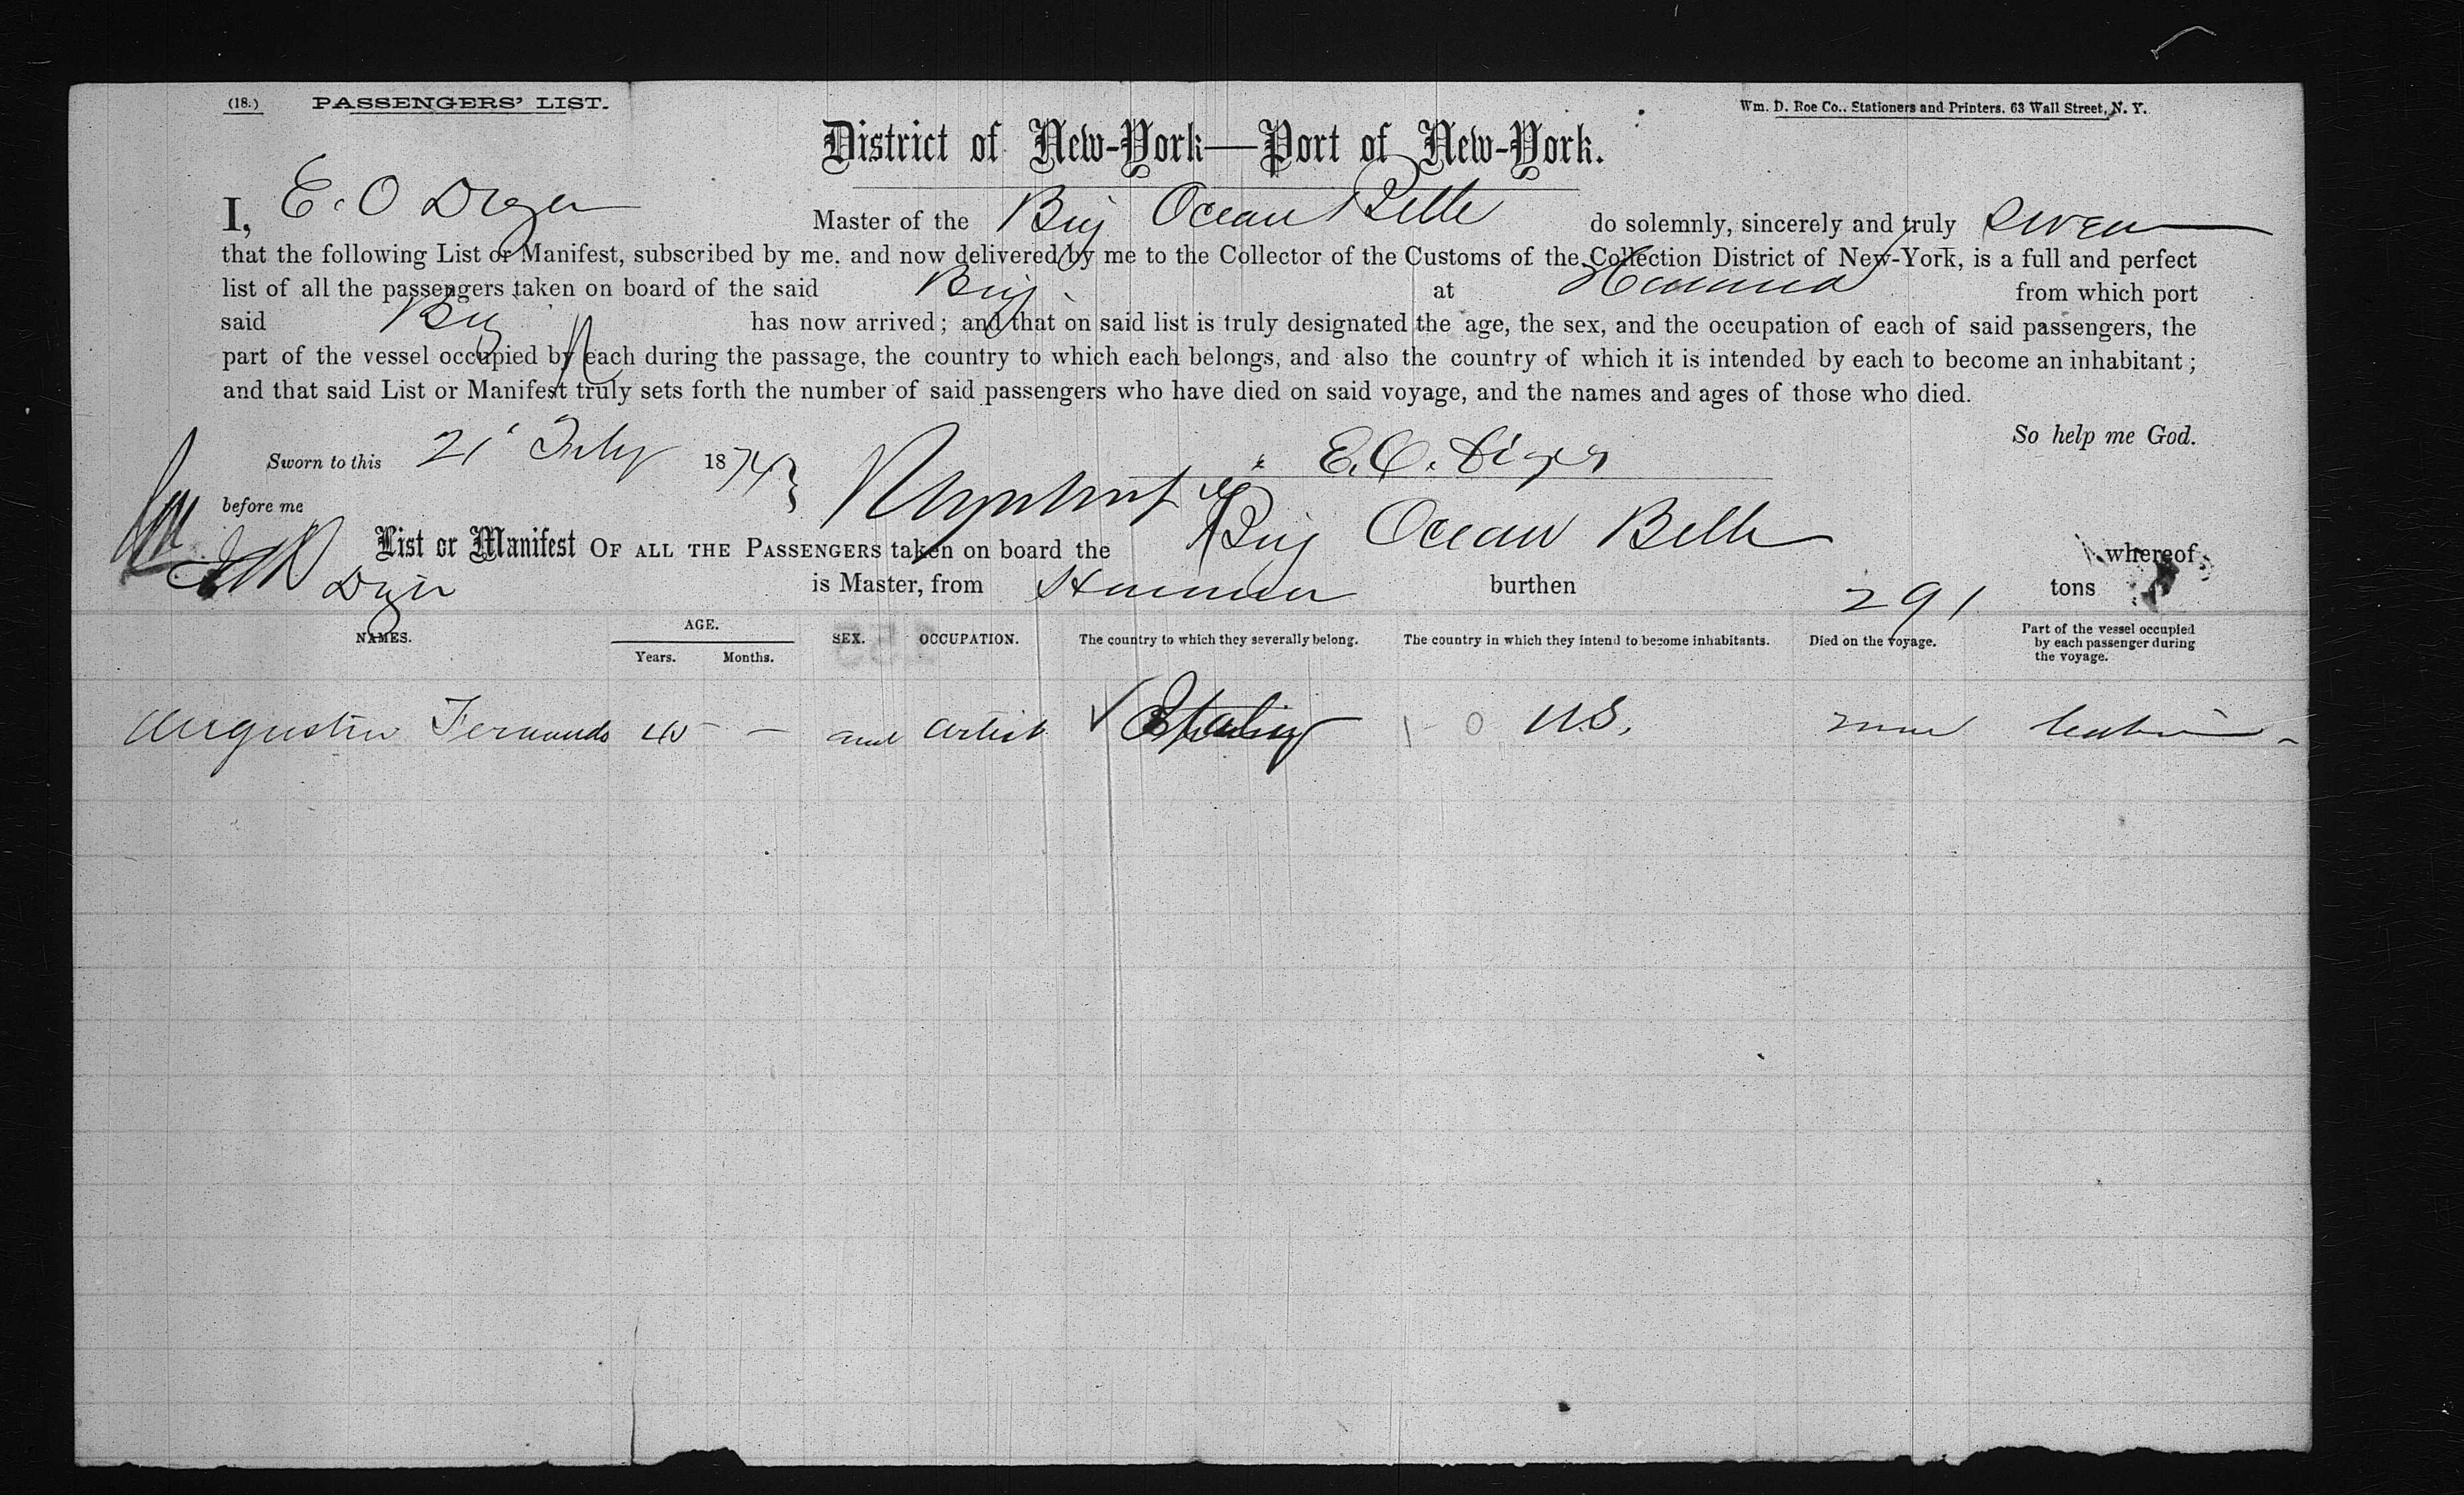 (18.) PASSENGERS' LIST. Wm. D. Roe Co., Stationers and Printers, 63 Wall Street, N. Y.
District of New-York—Port of New-York.
I, E. O Dyer Master of the Brig Ocean Belle do solemnly, sincerely and truly swear
that the following List or Manifest, subscribed by me, and now delivered by me to the Collector of the Customs of the Collection District of New-York, is a full and perfect
list of all the passengers taken on board of the said Brig at from which port
said Brig has now arrived; and that on said list is truly designated the age, the sex, and the occupation of each of said passengers, the
part of the vessel occupied by each during the passage, the country to which each belongs, and also the country of which it is intended by each to become an inhabitant;
and that said List or Manifest truly sets forth the number of said passengers who have died on said voyage, and the names and ages of those who died.
So help me God.
Sworn to this 21 July 1874 E. O. Dyer
before me
List or Manifest OF ALL THE PASSENGERS taken on board the Brig Ocean Belle whereof
Dyer is Master, from burthen 291 tons
NAMES. AGE. Years. Months. SEX. OCCUPATION. The country to which they severally belong. The country in which they intend to become inhabitants. Died on the voyage. Part of the vessel occupied by each passenger during the voyage.
Augustin 40 — artist Italy U.S. none cabin